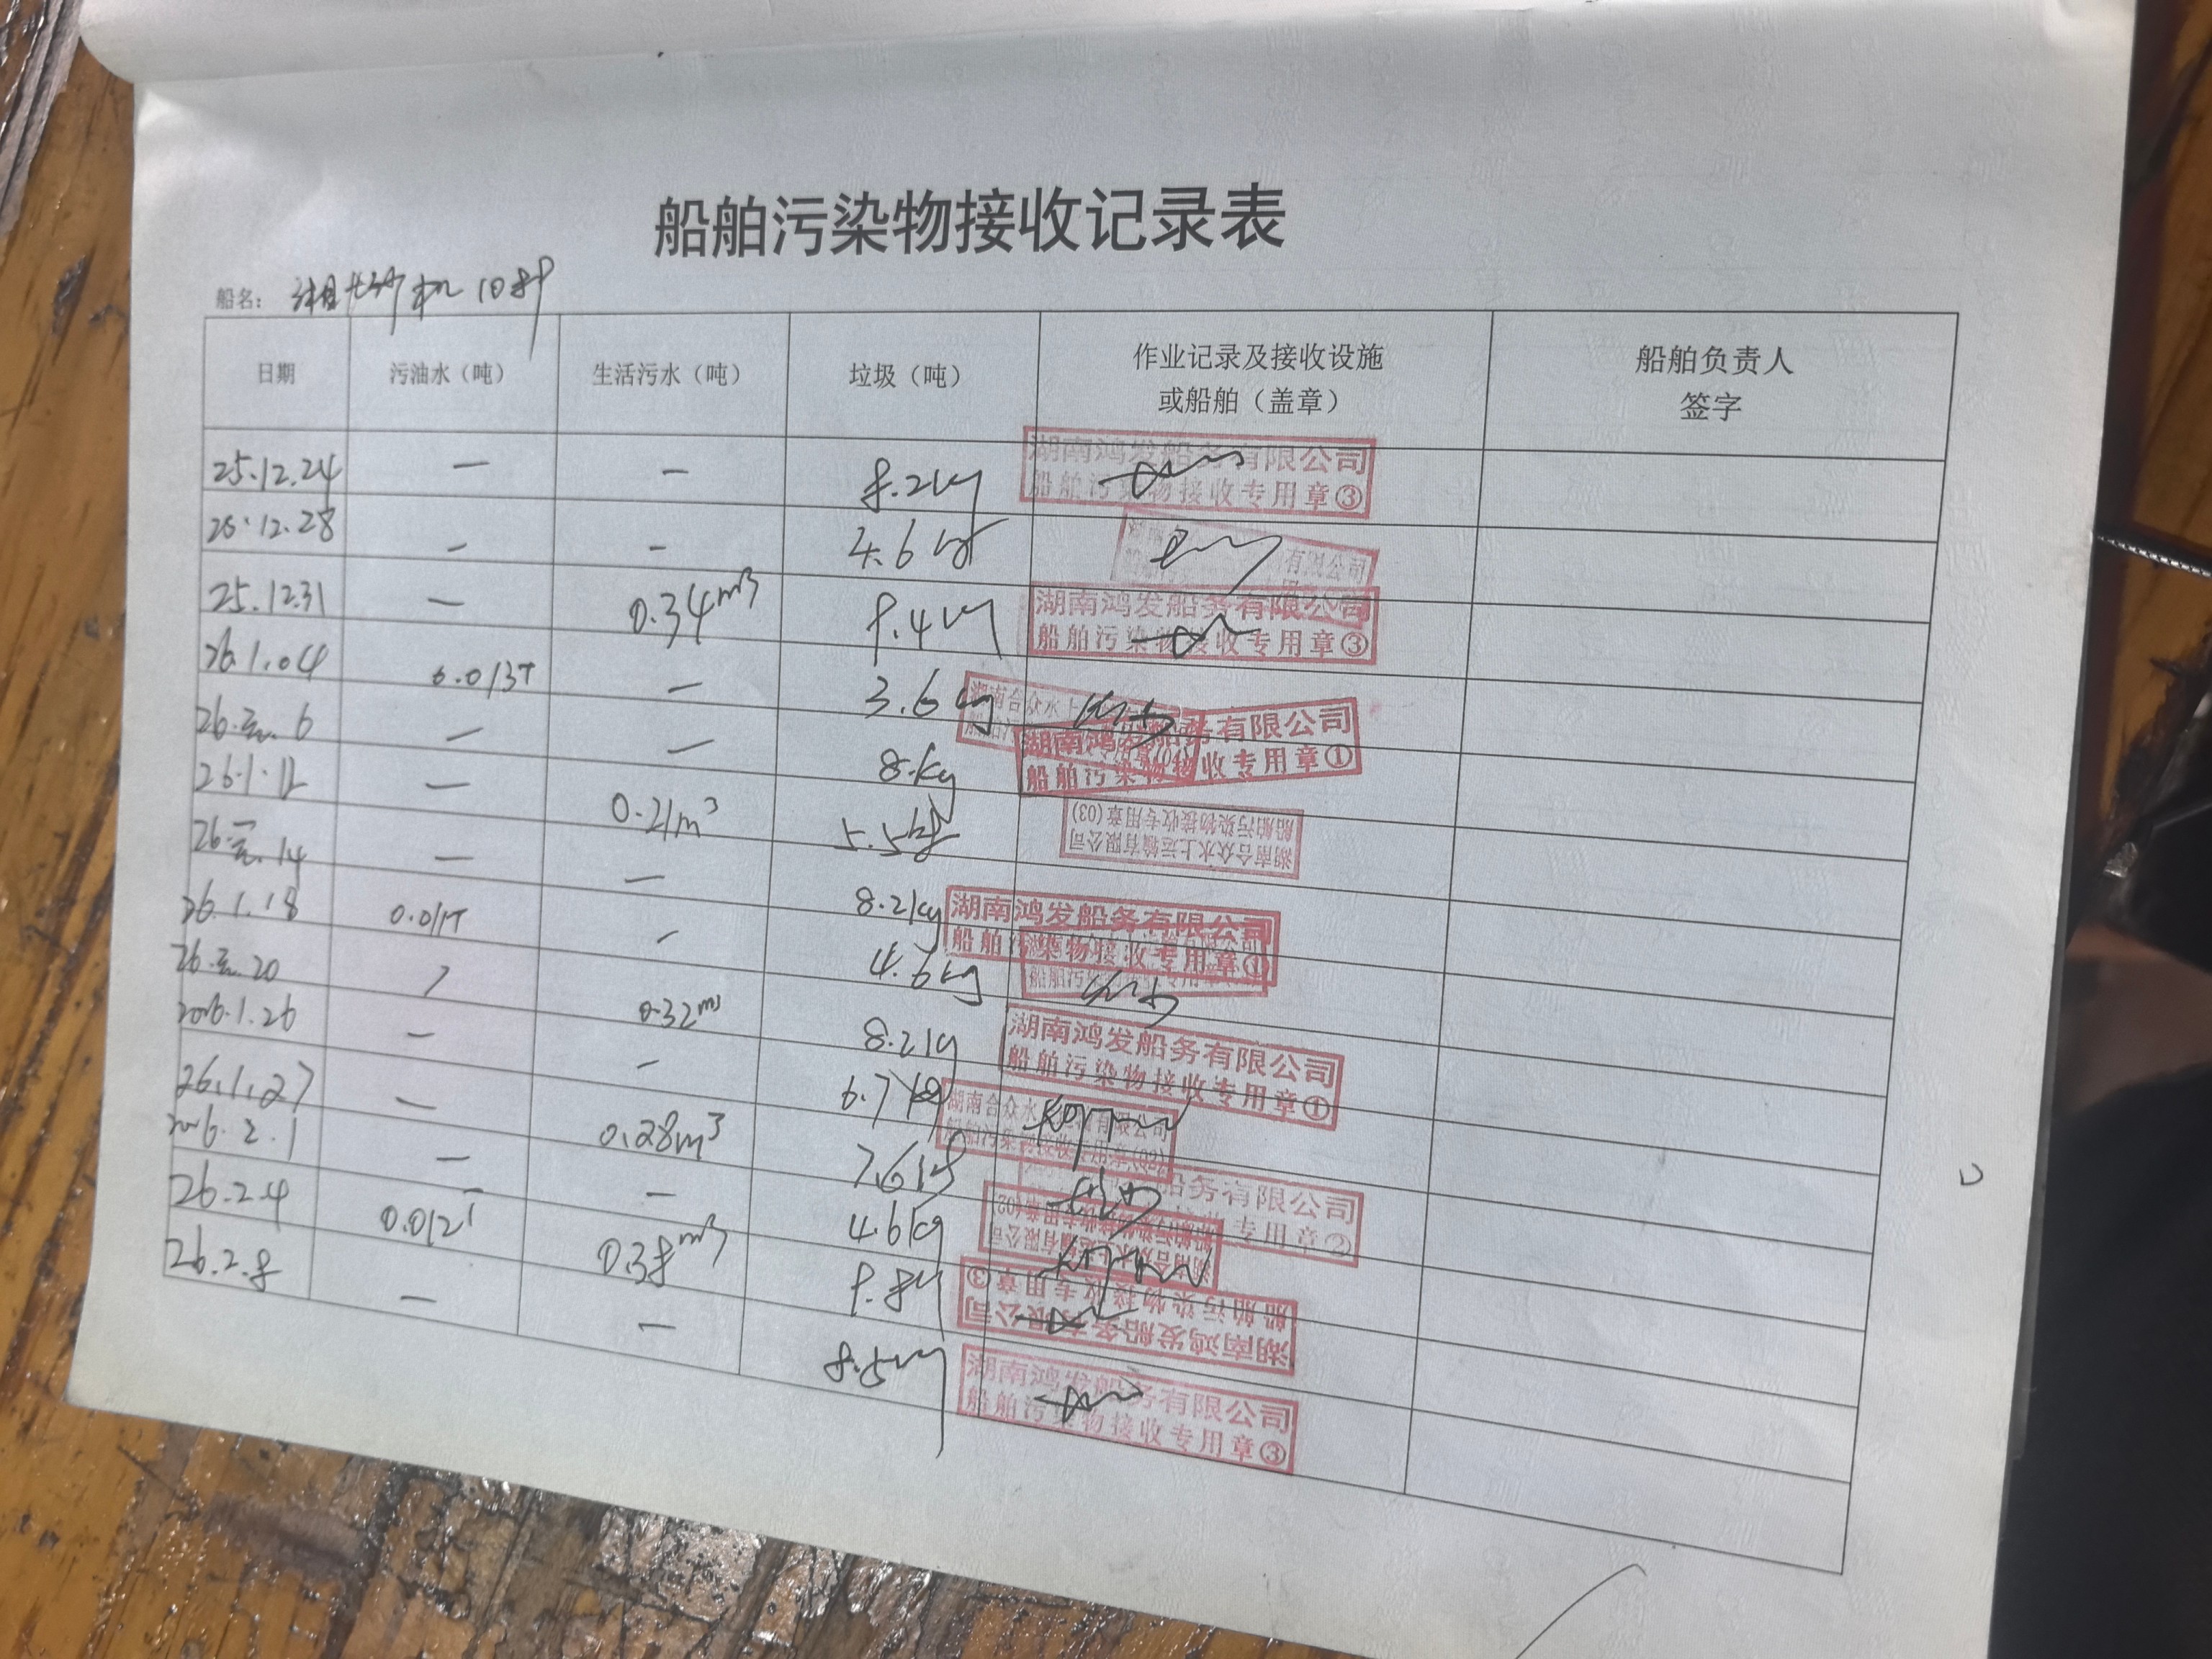 船舶污染物接收记录表
船名: 湘长沙机
日期 污油水（吨） 生活污水（吨） 垃圾（吨） 作业记录及接收设施或船舶（盖章） 船舶负责人签字
25.12.24 — — 8.2kg 湖南鸿发船务有限公司 船舶污染物接收专用章③
25.12.28 — — 4.6kg 有限公司
25.12.31 — 0.34m³ 9.4kg 湖南鸿发船务有限公司 船舶污染物接收专用章③
26.1.04 0.013T — 3.6kg 湖南合众水上
26.元.6 — — 8.kg 湖南鸿发船务有限公司 船舶污染物接收专用章①
26.1.12 — 0.21m³ 5.5kg 湖南合众水上运输有限公司 船舶污染物接收专用章(03)
26.元.14 — — 8.2kg 湖南鸿发船务有限公司 船舶污染物接收专用章①
26.1.18 0.011T — 4.6kg 船舶污
26.元.20 / 0.32m³ 8.2kg 湖南鸿发船务有限公司 船舶污染物接收专用章①
2026.1.26 — — 6.7kg 湖南合众水 有限公司
26.1.27 — 0.28m³ 7.6kg 船务有限公司 专用章②
2026.2.1 — — 4.6kg
26.2.4 0.012T 0.38m³ 9.8kg 湖南鸿发船务有限公司 船舶污染物接收专用章③
26.2.8 — — 8.5kg 湖南鸿发船务有限公司 船舶污染物接收专用章③